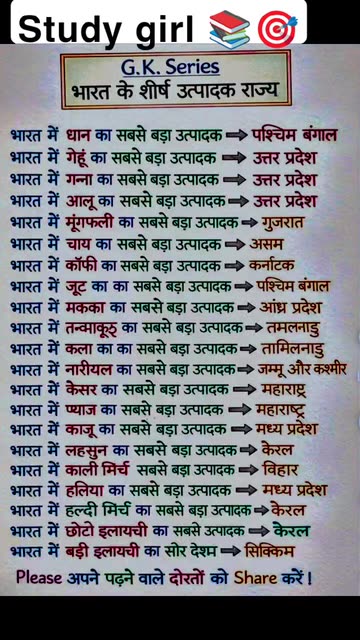 Study girl 📚🎯
G.K. Series
भारत के शीर्ष उत्पादक राज्य
भारत में धान का सबसे बड़ा उत्पादक ⇒ पश्चिम बंगाल
भारत में गेहूं का सबसे बड़ा उत्पादक ⇒ उत्तर प्रदेश
भारत में गन्ना का सबसे बड़ा उत्पादक ⇒ उत्तर प्रदेश
भारत में आलू का सबसे बड़ा उत्पादक ⇒ उत्तर प्रदेश
भारत में मूंगफली का सबसे बड़ा उत्पादक ⇒ गुजरात
भारत में चाय का सबसे बड़ा उत्पादक ⇒ असम
भारत में कॉफी का सबसे बड़ा उत्पादक ⇒ कर्नाटक
भारत में जूट का का सबसे बड़ा उत्पादक ⇒ पश्चिम बंगाल
भारत में मकका का सबसे बड़ा उत्पादक ⇒ आंध्र प्रदेश
भारत में तन्माकूठ् का सबसे बड़ा उत्पादक ⇒ तमलनाडु
भारत में कला का का सबसे बड़ा उत्पादक ⇒ तामिलनाडु
भारत में नारीयल का सबसे बड़ा उत्पादक ⇒ जम्मू और कश्मीर
भारत में केसर का सबसे बड़ा उत्पादक ⇒ महाराष्ट्र
भारत में प्याज का सबसे बड़ा उत्पादक ⇒ महाराष्ट्र
भारत में काजू का सबसे बड़ा उत्पादक ⇒ मध्य प्रदेश
भारत में लहसुन का सबसे बड़ा उत्पादक ⇒ केरल
भारत में काली मिर्च सबसे बड़ा उत्पादक ⇒ विहार
भारत में हलिया का सबसे बड़ा उत्पादक ⇒ मध्य प्रदेश
भारत में हल्दी मिर्च का सबसे बड़ा उत्पादक ⇒ केरल
भारत में छोटो इलायची का सबसे उत्पादक ⇒ केरल
भारत में बड़ी इलायची का सीर देश्म ⇒ सिक्किम
Please अपने पढ़ने वाले दोरतों को Share करें !